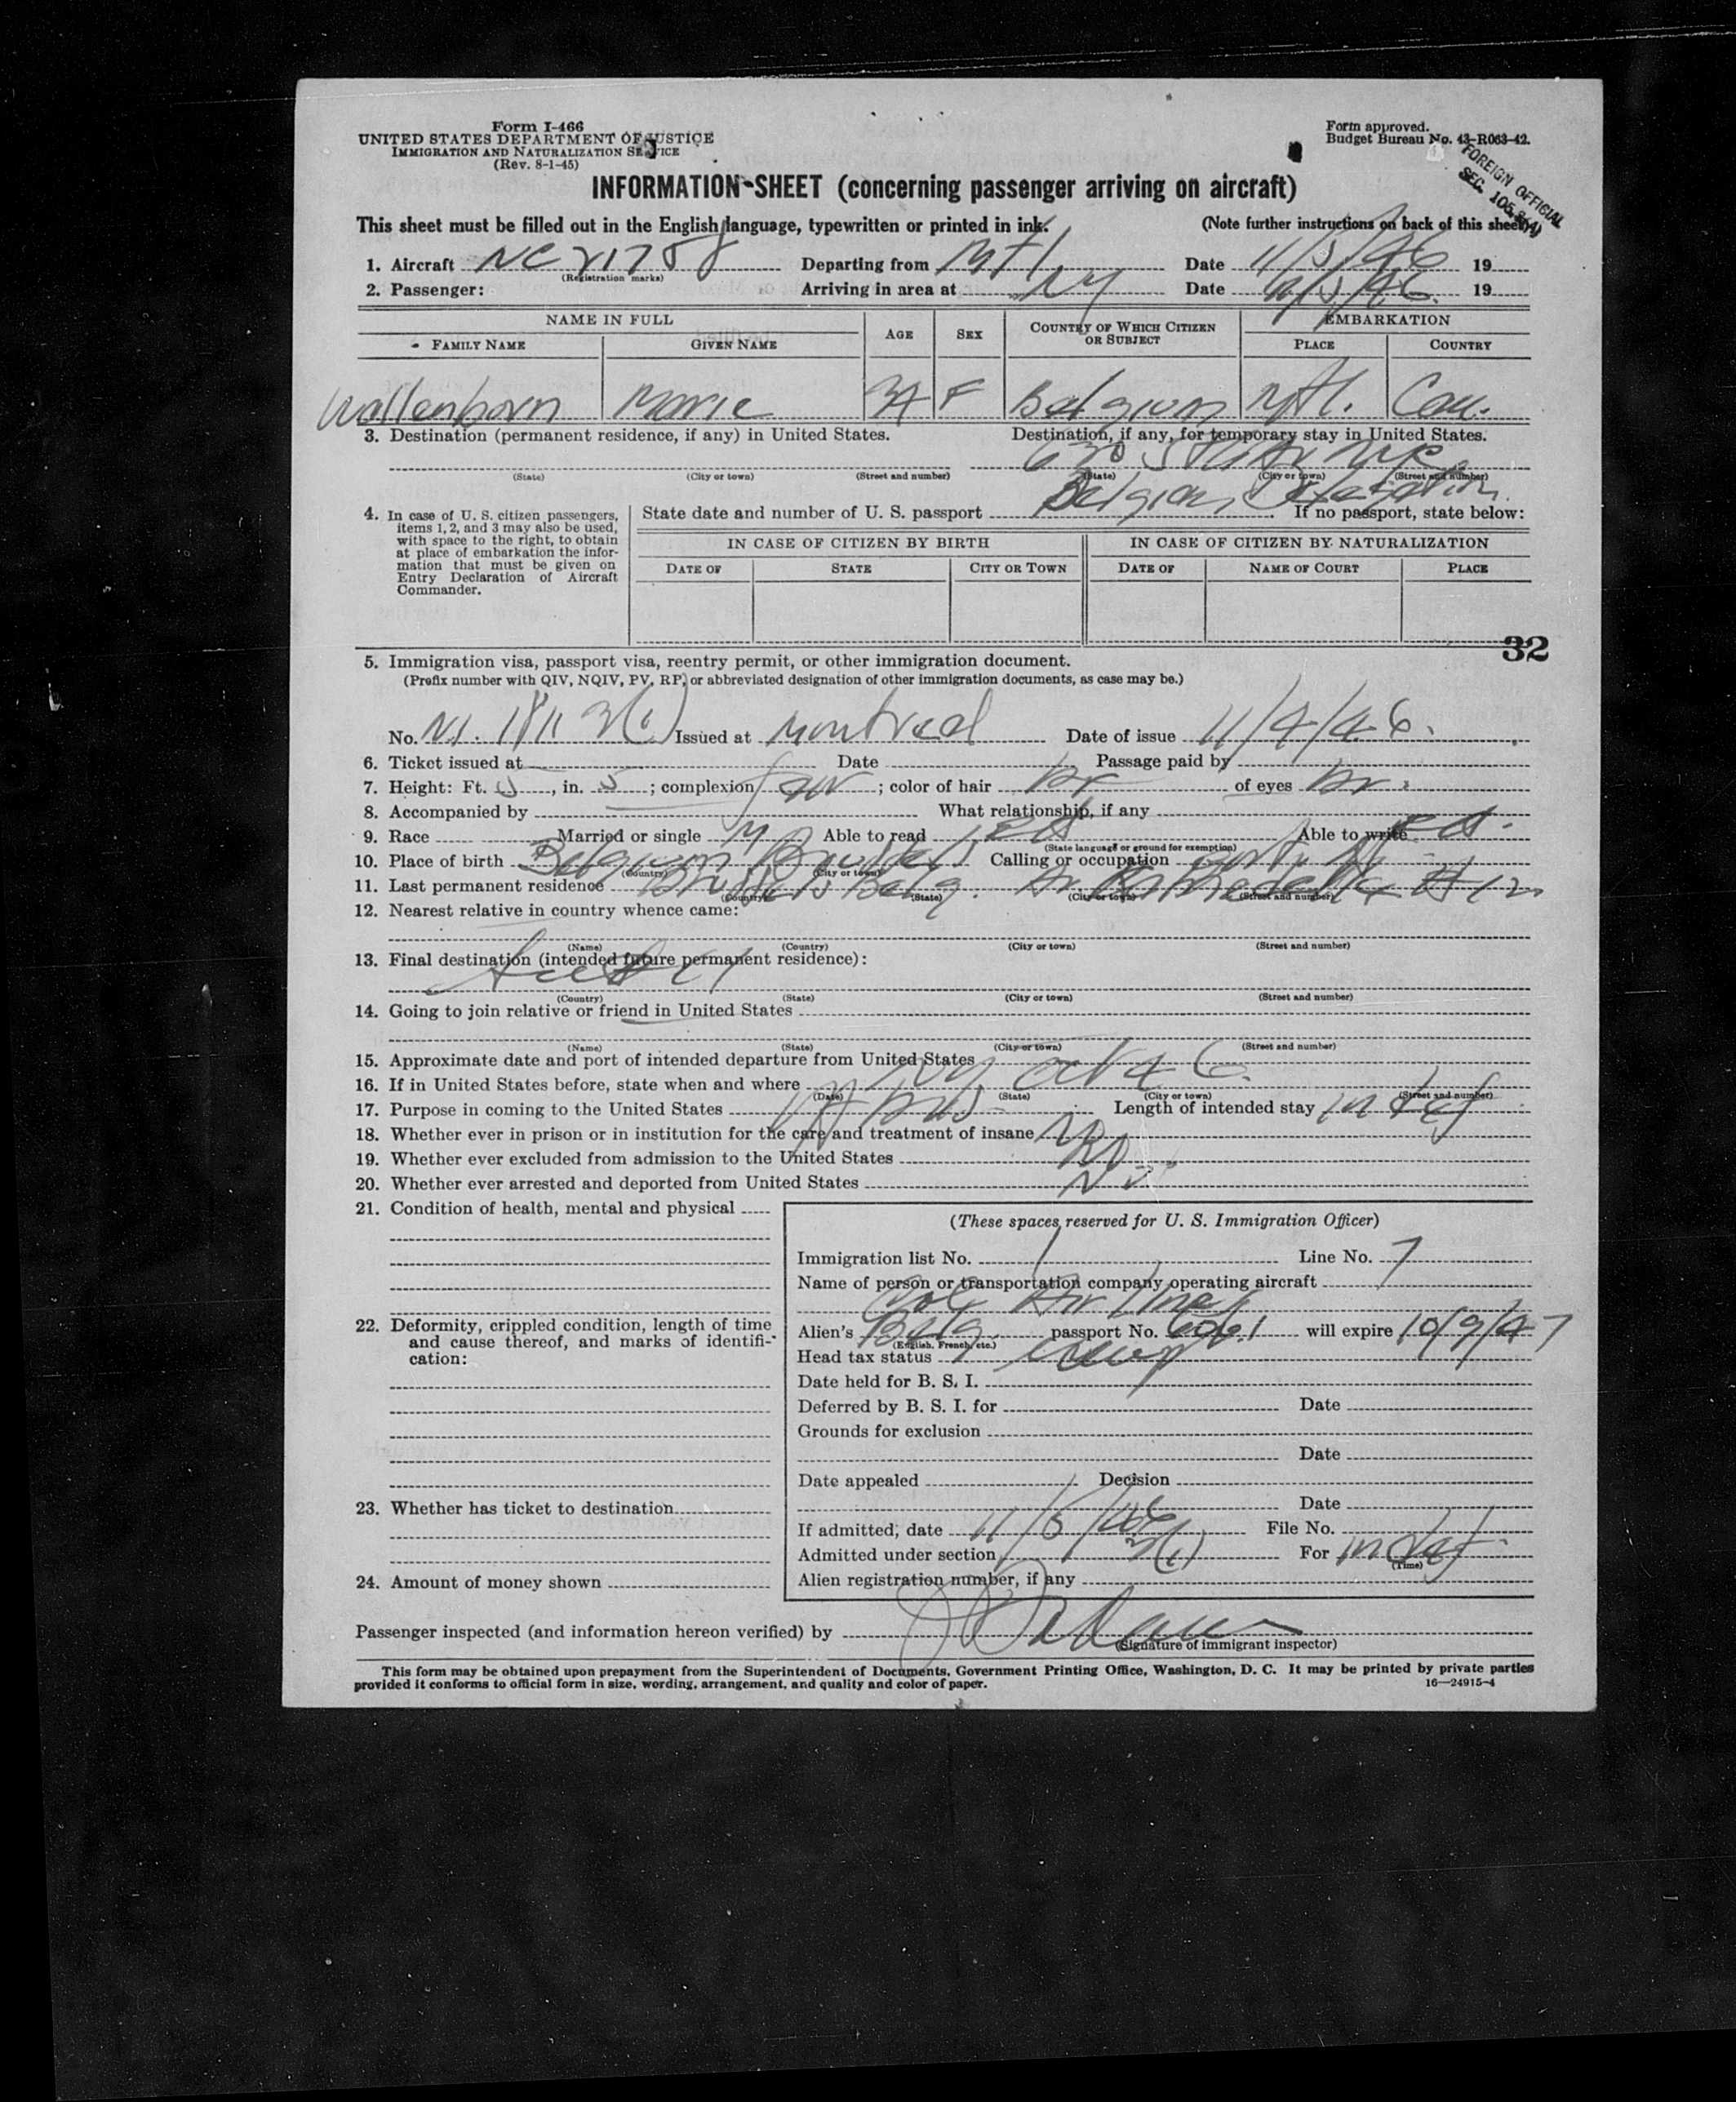 Form I-466
UNITED STATES DEPARTMENT OF JUSTICE
IMMIGRATION AND NATURALIZATION SERVICE
(Rev. 8-1-45)
Form approved.
Budget Bureau No. 43-R063-42.
FOREIGN OFFICIAL
SEC.
INFORMATION SHEET (concerning passenger arriving on aircraft)
This sheet must be filled out in the English language, typewritten or printed in ink. (Note further instructions on back of this sheet)
1. Aircraft NC 21758 Departing from Mtl Date 11/5/46 19
(Registration marks)
2. Passenger: Arriving in area at NY Date 11/5/46 19
NAME IN FULL AGE SEX COUNTRY OF WHICH CITIZEN OR SUBJECT EMBARKATION
FAMILY NAME GIVEN NAME PLACE COUNTRY
Wallenborn Marie 34 F Belgium Mtl. Can.
3. Destination (permanent residence, if any) in United States. Destination, if any, for temporary stay in United States.
630 5th Av NYC
(State) (City or town) (Street and number) (State) (City or town) (Street and number)
Belgian Delegation
4. In case of U. S. citizen passengers, items 1, 2, and 3 may also be used, with space to the right, to obtain at place of embarkation the information that must be given on Entry Declaration of Aircraft Commander.
State date and number of U. S. passport If no passport, state below:
IN CASE OF CITIZEN BY BIRTH IN CASE OF CITIZEN BY NATURALIZATION
DATE OF STATE CITY OR TOWN DATE OF NAME OF COURT PLACE
32
5. Immigration visa, passport visa, reentry permit, or other immigration document.
(Prefix number with QIV, NQIV, PV, RP, or abbreviated designation of other immigration documents, as case may be.)
No. NI. 1811 3(1) Issued at Montreal Date of issue 11/4/46.
6. Ticket issued at Date Passage paid by
7. Height: Ft. 5, in. 5; complexion fair; color of hair br of eyes br.
8. Accompanied by What relationship, if any
9. Race Married or single M Able to read Able to write
(State language or ground for exemption)
10. Place of birth Belgium Brussels Calling or occupation
(Country) (City or town)
11. Last permanent residence Brussels Belg.
(Country) (State) (City or town) (Street and number)
12. Nearest relative in country whence came:
(Name) (Country) (City or town) (Street and number)
13. Final destination (intended future permanent residence):
(Country) (State) (City or town) (Street and number)
14. Going to join relative or friend in United States
(Name) (State) (City or town) (Street and number)
15. Approximate date and port of intended departure from United States
16. If in United States before, state when and where NY Oct 46.
(Date) (State) (City or town) (Street and number)
17. Purpose in coming to the United States Length of intended stay indef
18. Whether ever in prison or in institution for the care and treatment of insane No
19. Whether ever excluded from admission to the United States No
20. Whether ever arrested and deported from United States No
21. Condition of health, mental and physical
22. Deformity, crippled condition, length of time and cause thereof, and marks of identification:
23. Whether has ticket to destination
24. Amount of money shown
(These spaces reserved for U. S. Immigration Officer)
Immigration list No. 1 Line No. 7
Name of person or transportation company operating aircraft
Col Air lines
Alien's Belg. passport No. 6061 will expire 10/9/47
(English, French, etc.)
Head tax status exempt
Date held for B. S. I.
Deferred by B. S. I. for Date
Grounds for exclusion
Date
Date appealed Decision
Date
If admitted, date 11/5/46 File No.
Admitted under section 3(1) For indef
(Time)
Alien registration number, if any
Passenger inspected (and information hereon verified) by
(Signature of immigrant inspector)
This form may be obtained upon prepayment from the Superintendent of Documents, Government Printing Office, Washington, D. C. It may be printed by private parties
provided it conforms to official form in size, wording, arrangement, and quality and color of paper. 16—24915-4